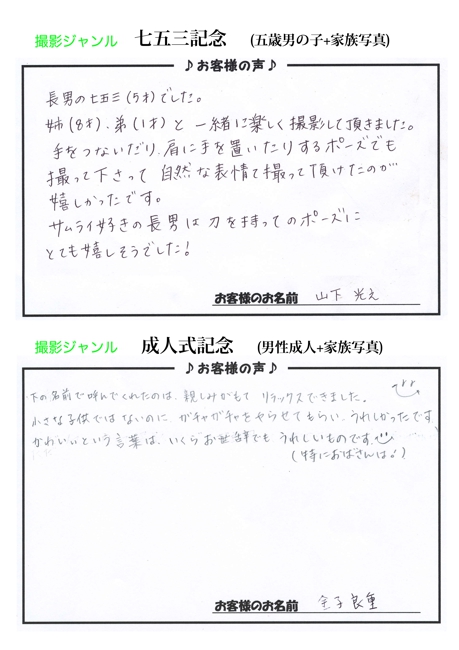 撮影ジャンル 七五三記念 (五歳男の子+家族写真)
♪お客様の声♪
長男の七五三(5才)でした。
姉(8才)、弟(1才)と一緒に楽しく撮影して頂きました。
手をつないだり、肩に手を置いたりするポーズでも
撮って下さって自然な表情で撮って頂けたのが
嬉しかったです。
サムライ好きの長男は刀を持ってのポーズに
とても嬉しそうでした!
お客様のお名前 山下 光え
撮影ジャンル 成人式記念 (男性成人+家族写真)
♪お客様の声♪
下の名前で呼んでくれたのは、親しみがもて リラックスできました。
小さな子供ではないのに、ガチャガチャをやらせてもらい、うれしかったです
かわいいという言葉は、いくらお世辞でも うれしいものです
(特におばさんは!)
お客様のお名前 金子良重